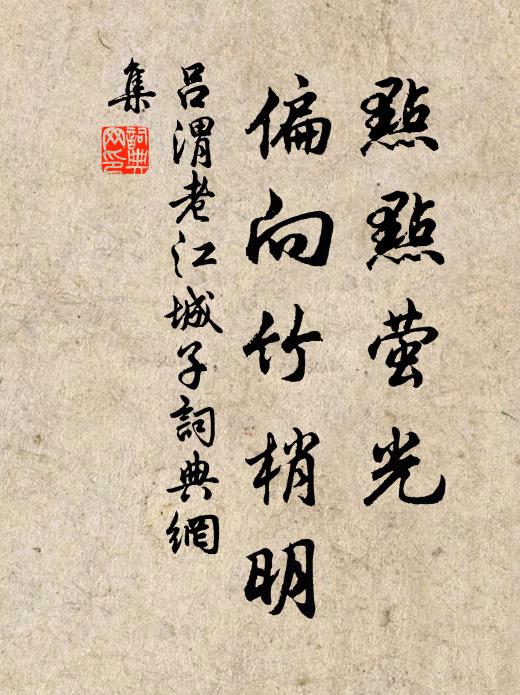 點點萤光
偏向竹梢明
吕渭老江城子詞典網
集
詞典網印